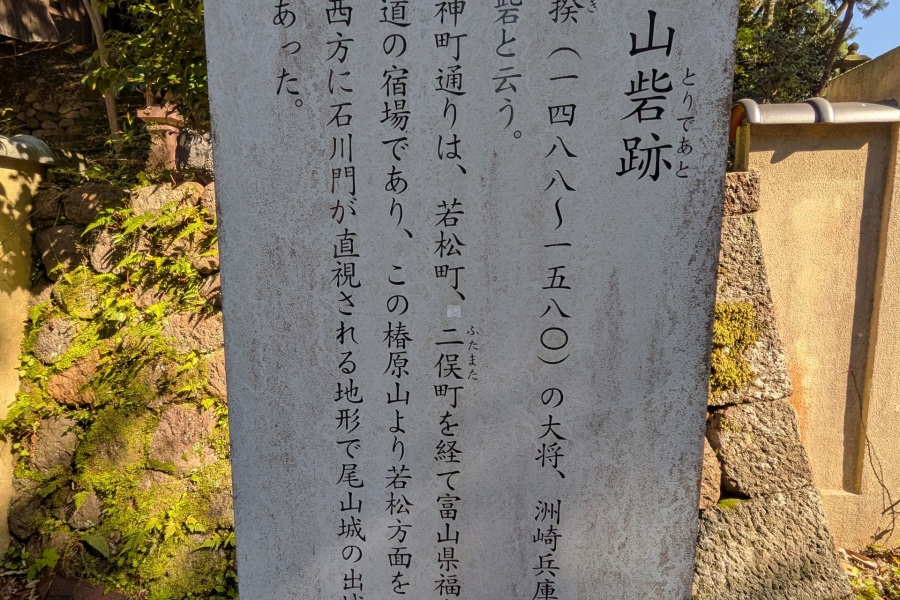 山砦跡
とりであと
揆（一四八八〜一五八〇）の大将、洲崎兵庫
き
砦と云う。
神町通りは、若松町、二俣町を経て富山県福
ふたまた
道の宿場であり、この椿原山より若松方面を
西方に石川門が直視される地形で尾山城の出城
あった。